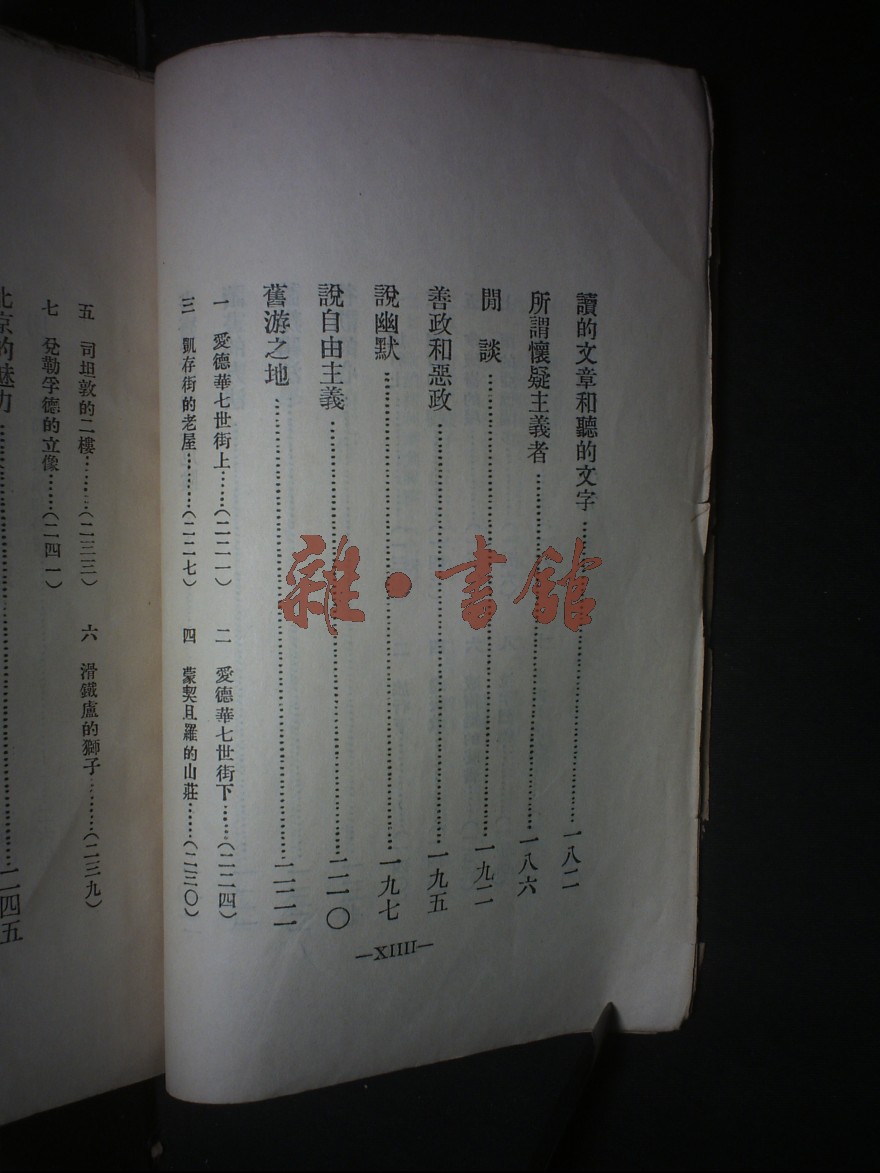 讀的文章和聽的文字……一八二
所謂懷疑主義者……一八六
閒談……一九二
善政和惡政……一九五
說幽默……一九七
說自由主義……二一〇
舊游之地……二二一
一 愛德華七世街上……(二二一) 二 愛德華七世街下……(二二四)
三 凱存街的老屋……(二二七) 四 蒙契且羅的山莊……(二三〇)
—XIIII—
五 司坦敦的二樓……(二三三) 六 滑鐵盧的獅子……(二三九)
七 兌勒孚德的立像……(二四一)
北京的魅力……二四五
雜·書館